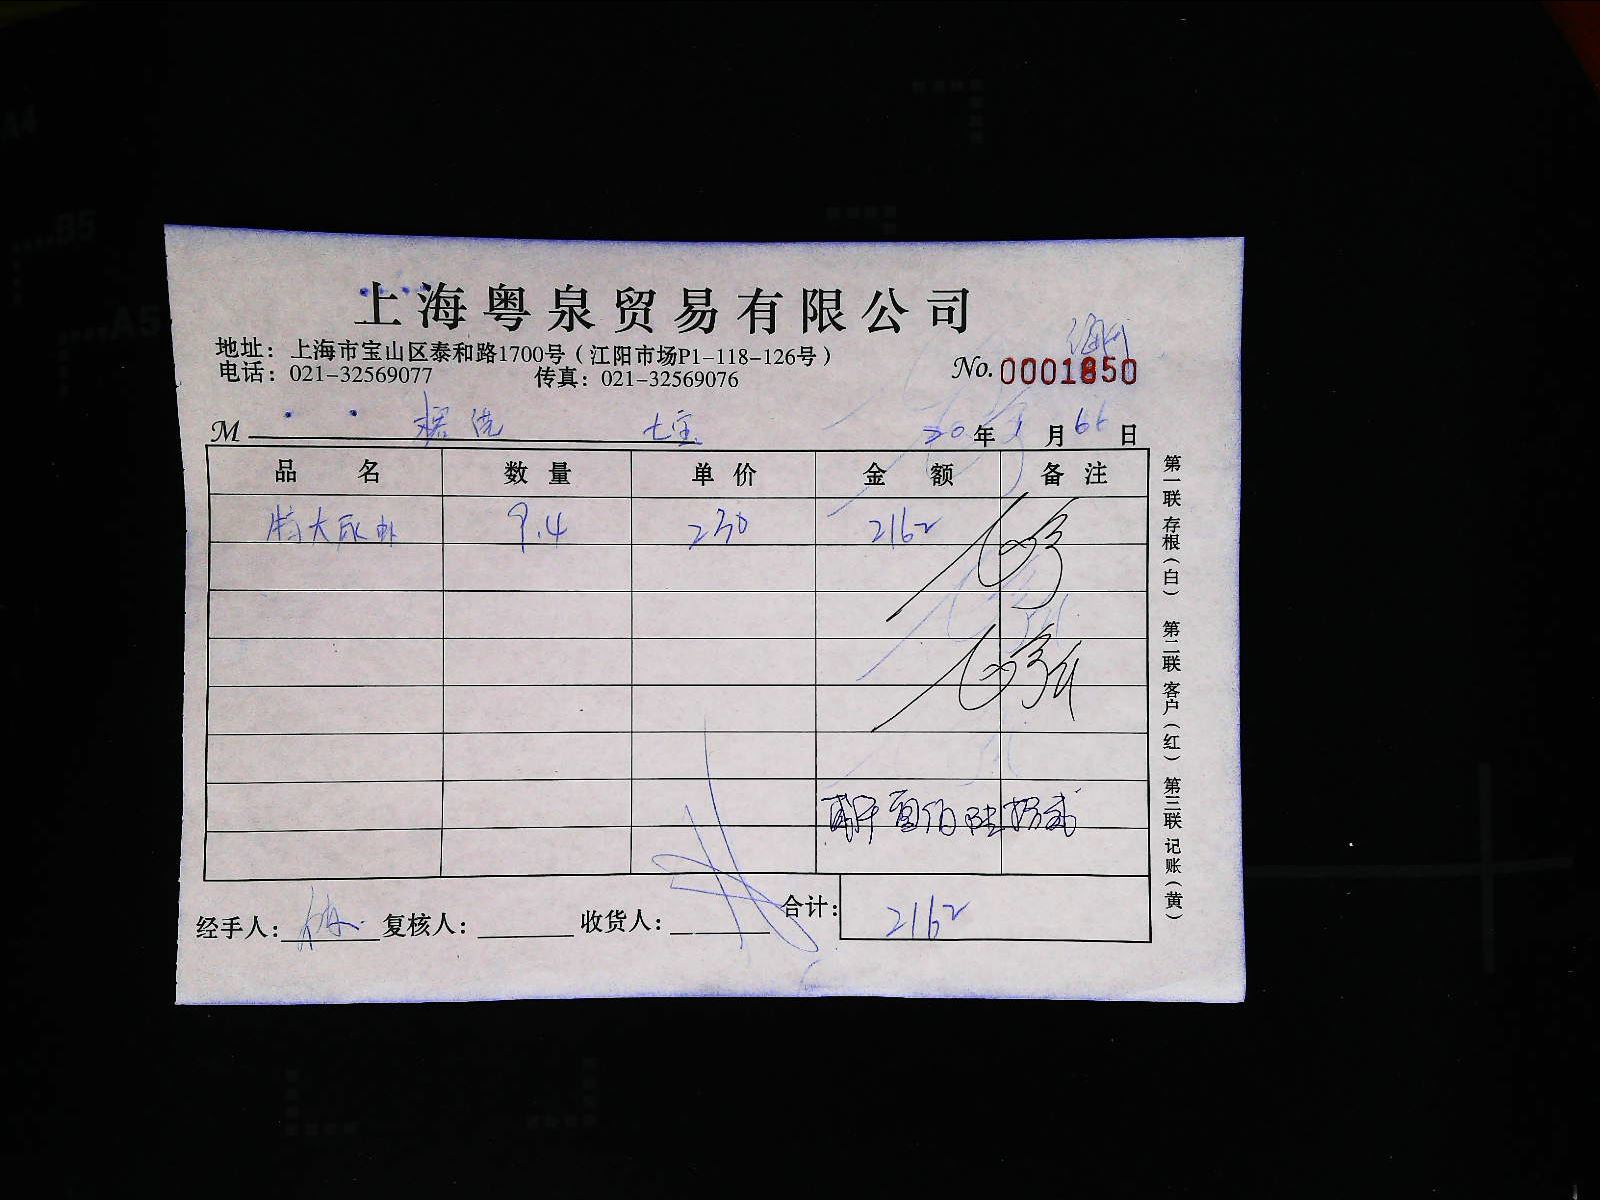 上海粤泉贸易有限公司
地址：上海市宝山区泰和路1700号（江阳市场P1-118-126号）
电话：021-32569077 传真：021-32569076
No. 0001850
M 七宝 20年 月 日
品 名 数 量 单 价 金 额 备 注
特大尿虾 9.4 230 2162
贰仟壹佰陆拾贰
合计： 2162
经手人： 复核人： 收货人：
第一联 存根（白） 第二联 客户（红） 第三联 记账（黄）